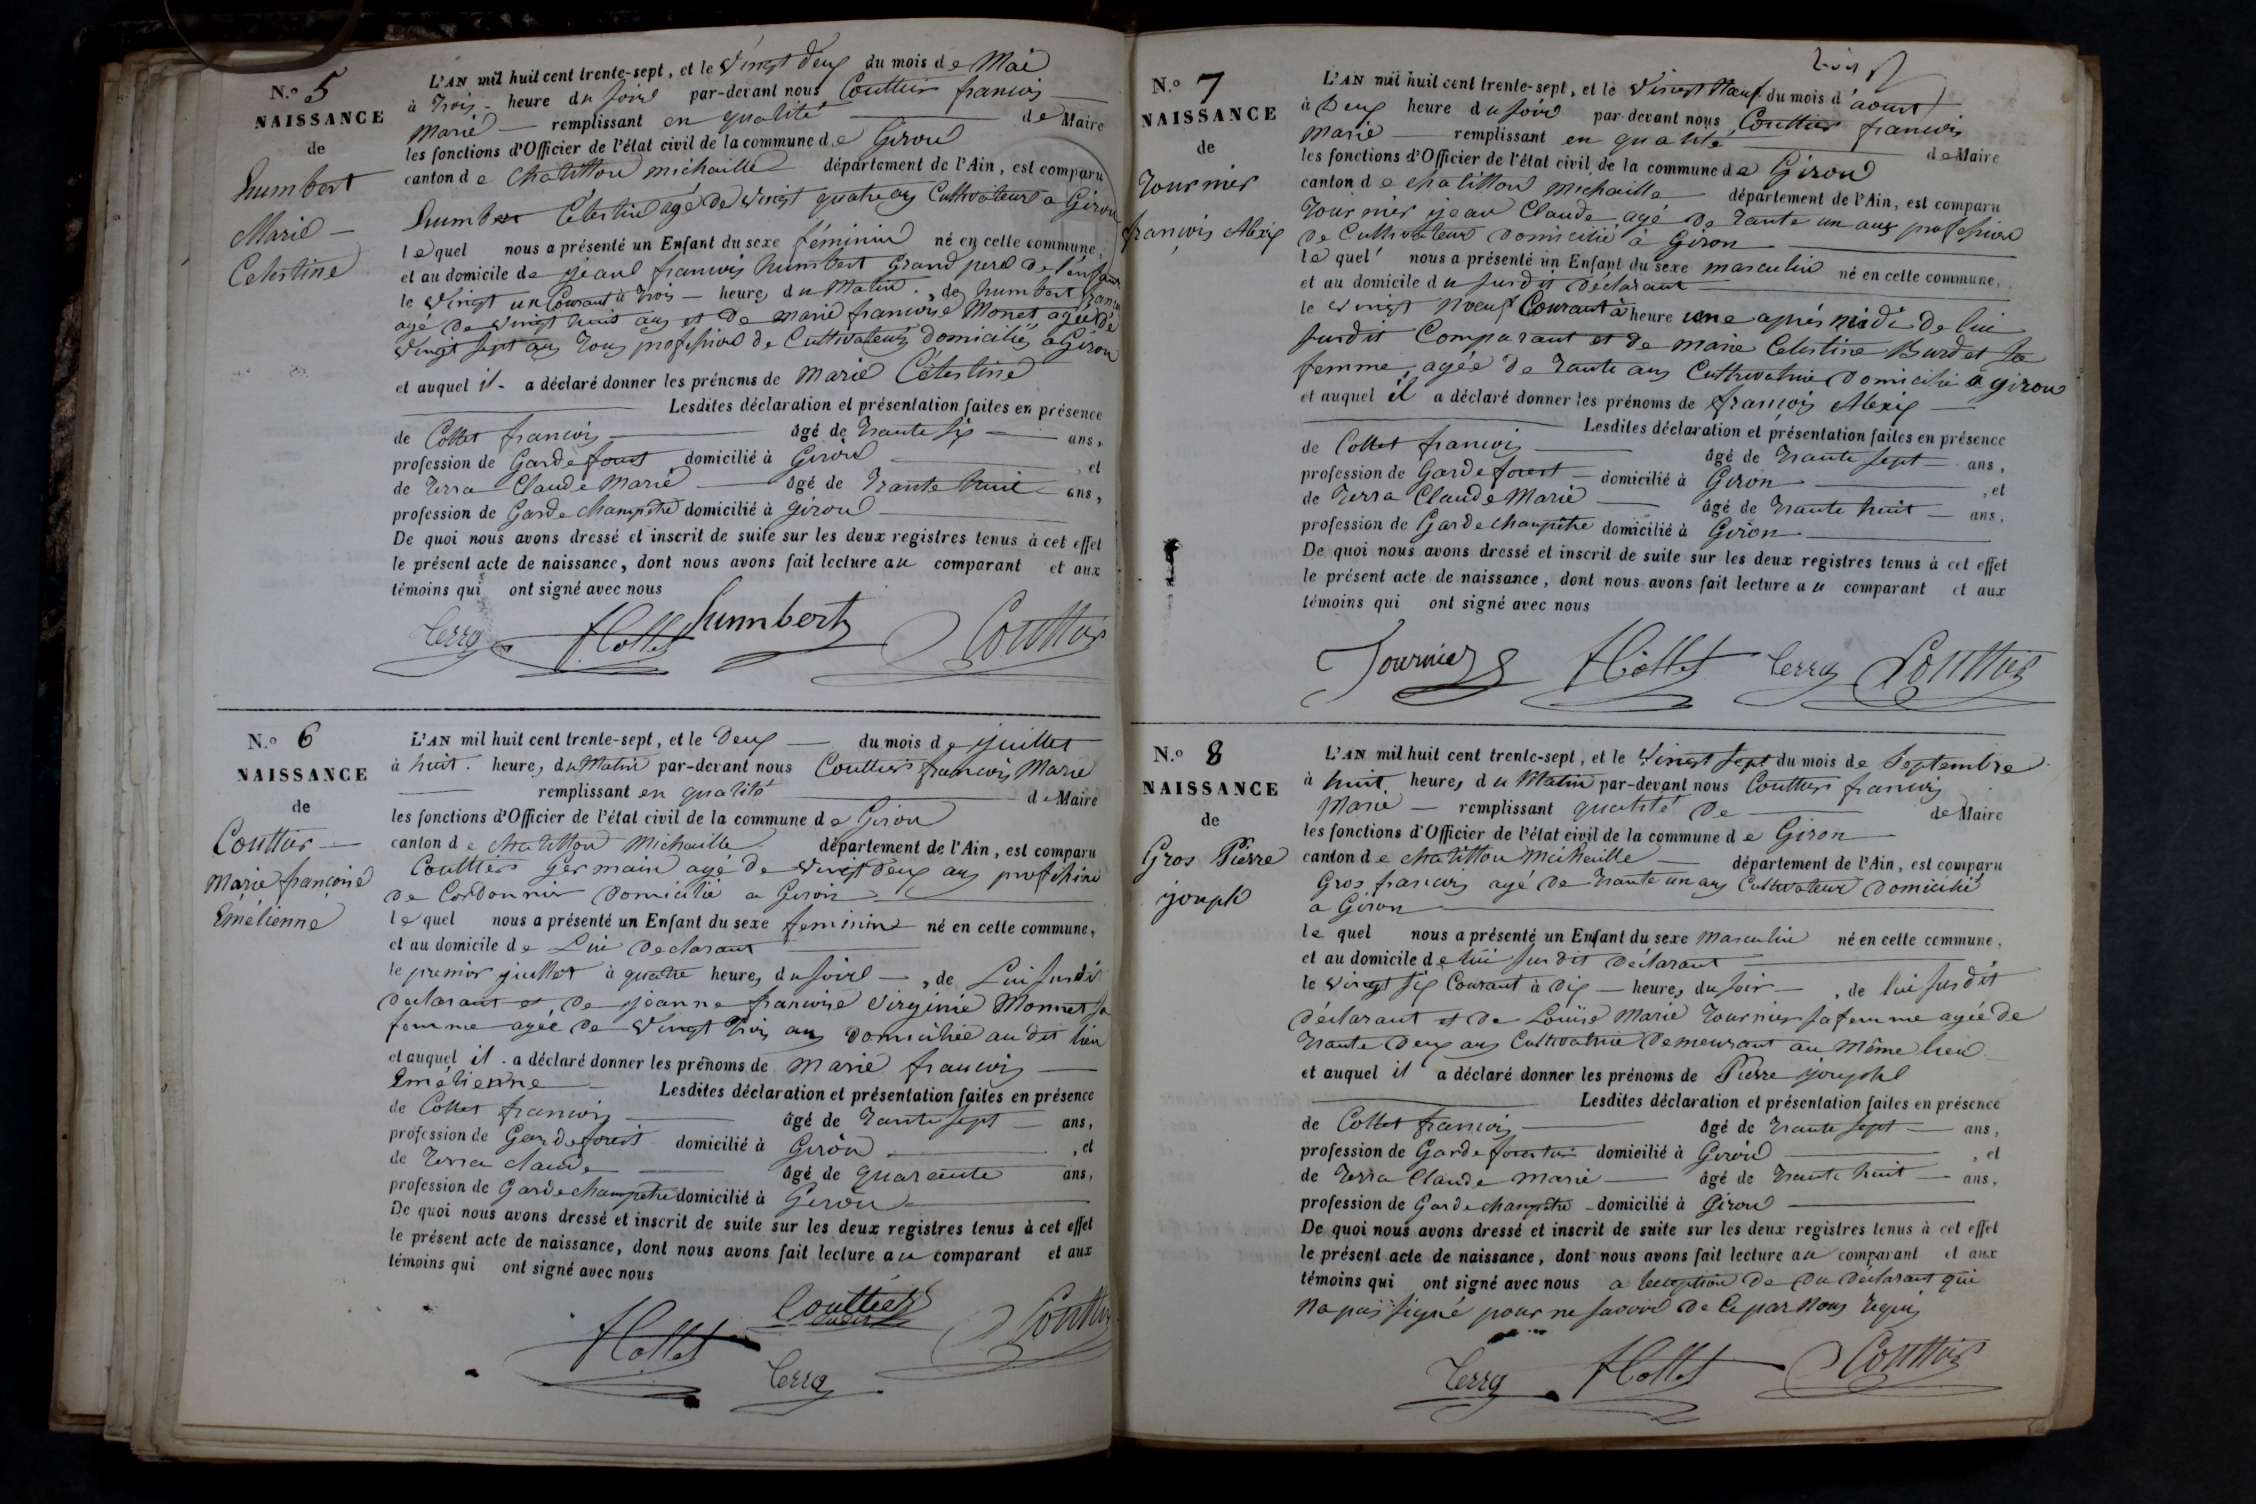 N.o 5
NAISSANCE
de
humbert
Marie —
Celestine
L'AN mil huit cent trente-sept, et le vingt deux du mois de Mai
à trois - heure du soire par-devant nous Couttier francois
Marie — remplissant en qualité — de Maire
les fonctions d'Officier de l'état civil de la commune de Giron
canton de chatillon michaille département de l'Ain, est comparu
humbert Célestin agé de vingt quatre ans Cultivateur a Giron
lequel nous a présenté un Enfant du sexe féminin né en cette commune,
et au domicile de jean francois humbert Grand pere de l'enfant
le vingt un Courant à trois — heures du Matin, de humbert
agé de vingt huit ans et de marie francoise Monet agée de
vingt sept ans tous profession de Cultivateurs domiciliés a Giron
et auquel il - a déclaré donner les prénoms de Marie Célestine
Lesdites déclaration et présentation faites en présence
de Collet francois — âgé de trante six — ans,
profession de Garde forest domicilié à Giron —, et
de Terra Claude Marie — âgé de trante huit — ans,
profession de Garde champetre domicilié à giron —
De quoi nous avons dressé et inscrit de suite sur les deux registres tenus à cet effet
le présent acte de naissance, dont nous avons fait lecture au comparant et aux
témoins qui ont signé avec nous
Terra fCollet humbert Couttier
N.o 6
NAISSANCE
de
Couttier —
Marie françoise
Emélienne
L'AN mil huit cent trente-sept, et le deux — du mois de juillet
à huit. heures du Matin par-devant nous Couttier francois Marie
— remplissant en qualité — de Maire
les fonctions d'Officier de l'état civil de la commune de Giron
canton de chatillon Michaille département de l'Ain, est comparu
Couttier Germain agé de vingt deux ans profession
de Cordonnier domicilié a Giron —
lequel nous a présenté un Enfant du sexe feminine né en cette commune,
et au domicile de Lui declarant —
le premier juillet à quatre heures du soire —, de Lui susdit
declarant et de jeanne francoise virginie Monnet sa
femme agée de vingt trois ans domiciliée au dit lieu
et auquel il - a déclaré donner les prénoms de Marie francois —
Emélienne — Lesdites déclaration et présentation faites en présence
de Collet francois — âgé de trante sept — ans,
profession de Garde forest domicilié à Giron —, et
de Terra claude — âgé de quarante ans,
profession de Garde champetre domicilié à Giron —
De quoi nous avons dressé et inscrit de suite sur les deux registres tenus à cet effet
le présent acte de naissance, dont nous avons fait lecture au comparant et aux
témoins qui ont signé avec nous
fCollet Couttier Terra Couttier
N.o 7
NAISSANCE
de
Tournier
françois Alexis
L'AN mil huit cent trente-sept, et le vingt Neuf du mois d'aoust
à Deux heure du soire par-devant nous Couttier francois
Marie — remplissant en qualité — de Maire
les fonctions d'Officier de l'état civil de la commune de Giron
canton de chatillon Michaille — département de l'Ain, est comparu
Tournier jean Claude agé de trante un ans profession
de Cultivateur domicilié à Giron —
lequel nous a présenté un Enfant du sexe masculin né en cette commune,
et au domicile du susdit déclarant —
le vingt noeuf Courant à heure une après midi de lui
susdit Comparant et de marie Celestine Burdet sa
femme, agée de trante ans Cultivatrice Domicilié a giron
et auquel il a déclaré donner les prénoms de françois Alexis —
Lesdites déclaration et présentation faites en présence
de Collet francois — âgé de trante sept — ans,
profession de Garde forest — domicilié à Giron —, et
de Terra Claude Marie — âgé de trante huit — ans,
profession de Garde champetre domicilié à Giron —
De quoi nous avons dressé et inscrit de suite sur les deux registres tenus à cet effet
le présent acte de naissance, dont nous avons fait lecture au comparant et aux
témoins qui ont signé avec nous
Tournier fCollet Terra Couttier
N.o 8
NAISSANCE
de
Gros Pierre
joseph
L'AN mil huit cent trente-sept, et le vingt sept du mois de Septembre
à huit heures du Matin par-devant nous Couttier francois
Marie — remplissant qualité de — de Maire
les fonctions d'Officier de l'état civil de la commune de Giron —
canton de chatillon Michaille — département de l'Ain, est comparu
Gros francois agé de trante un ans Cultivateur domicilié
a Giron —
le quel nous a présenté un Enfant du sexe masculin né en cette commune,
et au domicile de lui susdit déclarant —
le vingt six Courant à dix — heures du soir —, de lui susdit
déclarant et de Louise Marie Tournier sa femme agée de
trante deux ans Cultivatrice demeurant au même lieu —
et auquel il a déclaré donner les prénoms de Pierre joseph
Lesdites déclaration et présentation faites en présence
de Collet francois — âgé de trante sept — ans,
profession de Garde forestier domicilié à Giron —, et
de Terra Claude Marie — âgé de trante huit — ans,
profession de Garde champetre - domicilié à Giron —
De quoi nous avons dressé et inscrit de suite sur les deux registres tenus à cet effet
le présent acte de naissance, dont nous avons fait lecture au comparant et aux
témoins qui ont signé avec nous a lexeption de du déclarant qui
na pas signé pour ne savoir de ce par nous requis
Terra fCollet Couttier